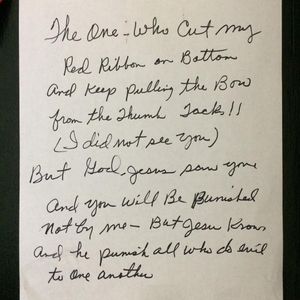 The One - Who Cut my
Red Ribbon on Bottom
And Keep Pulling the Bow
from the Thumb Tacks!!
(I did not see you)
But God-Jesus saw you
And you will Be Punished
Not by me - But Jesus Knows
And he punish all who do evil
to One Another